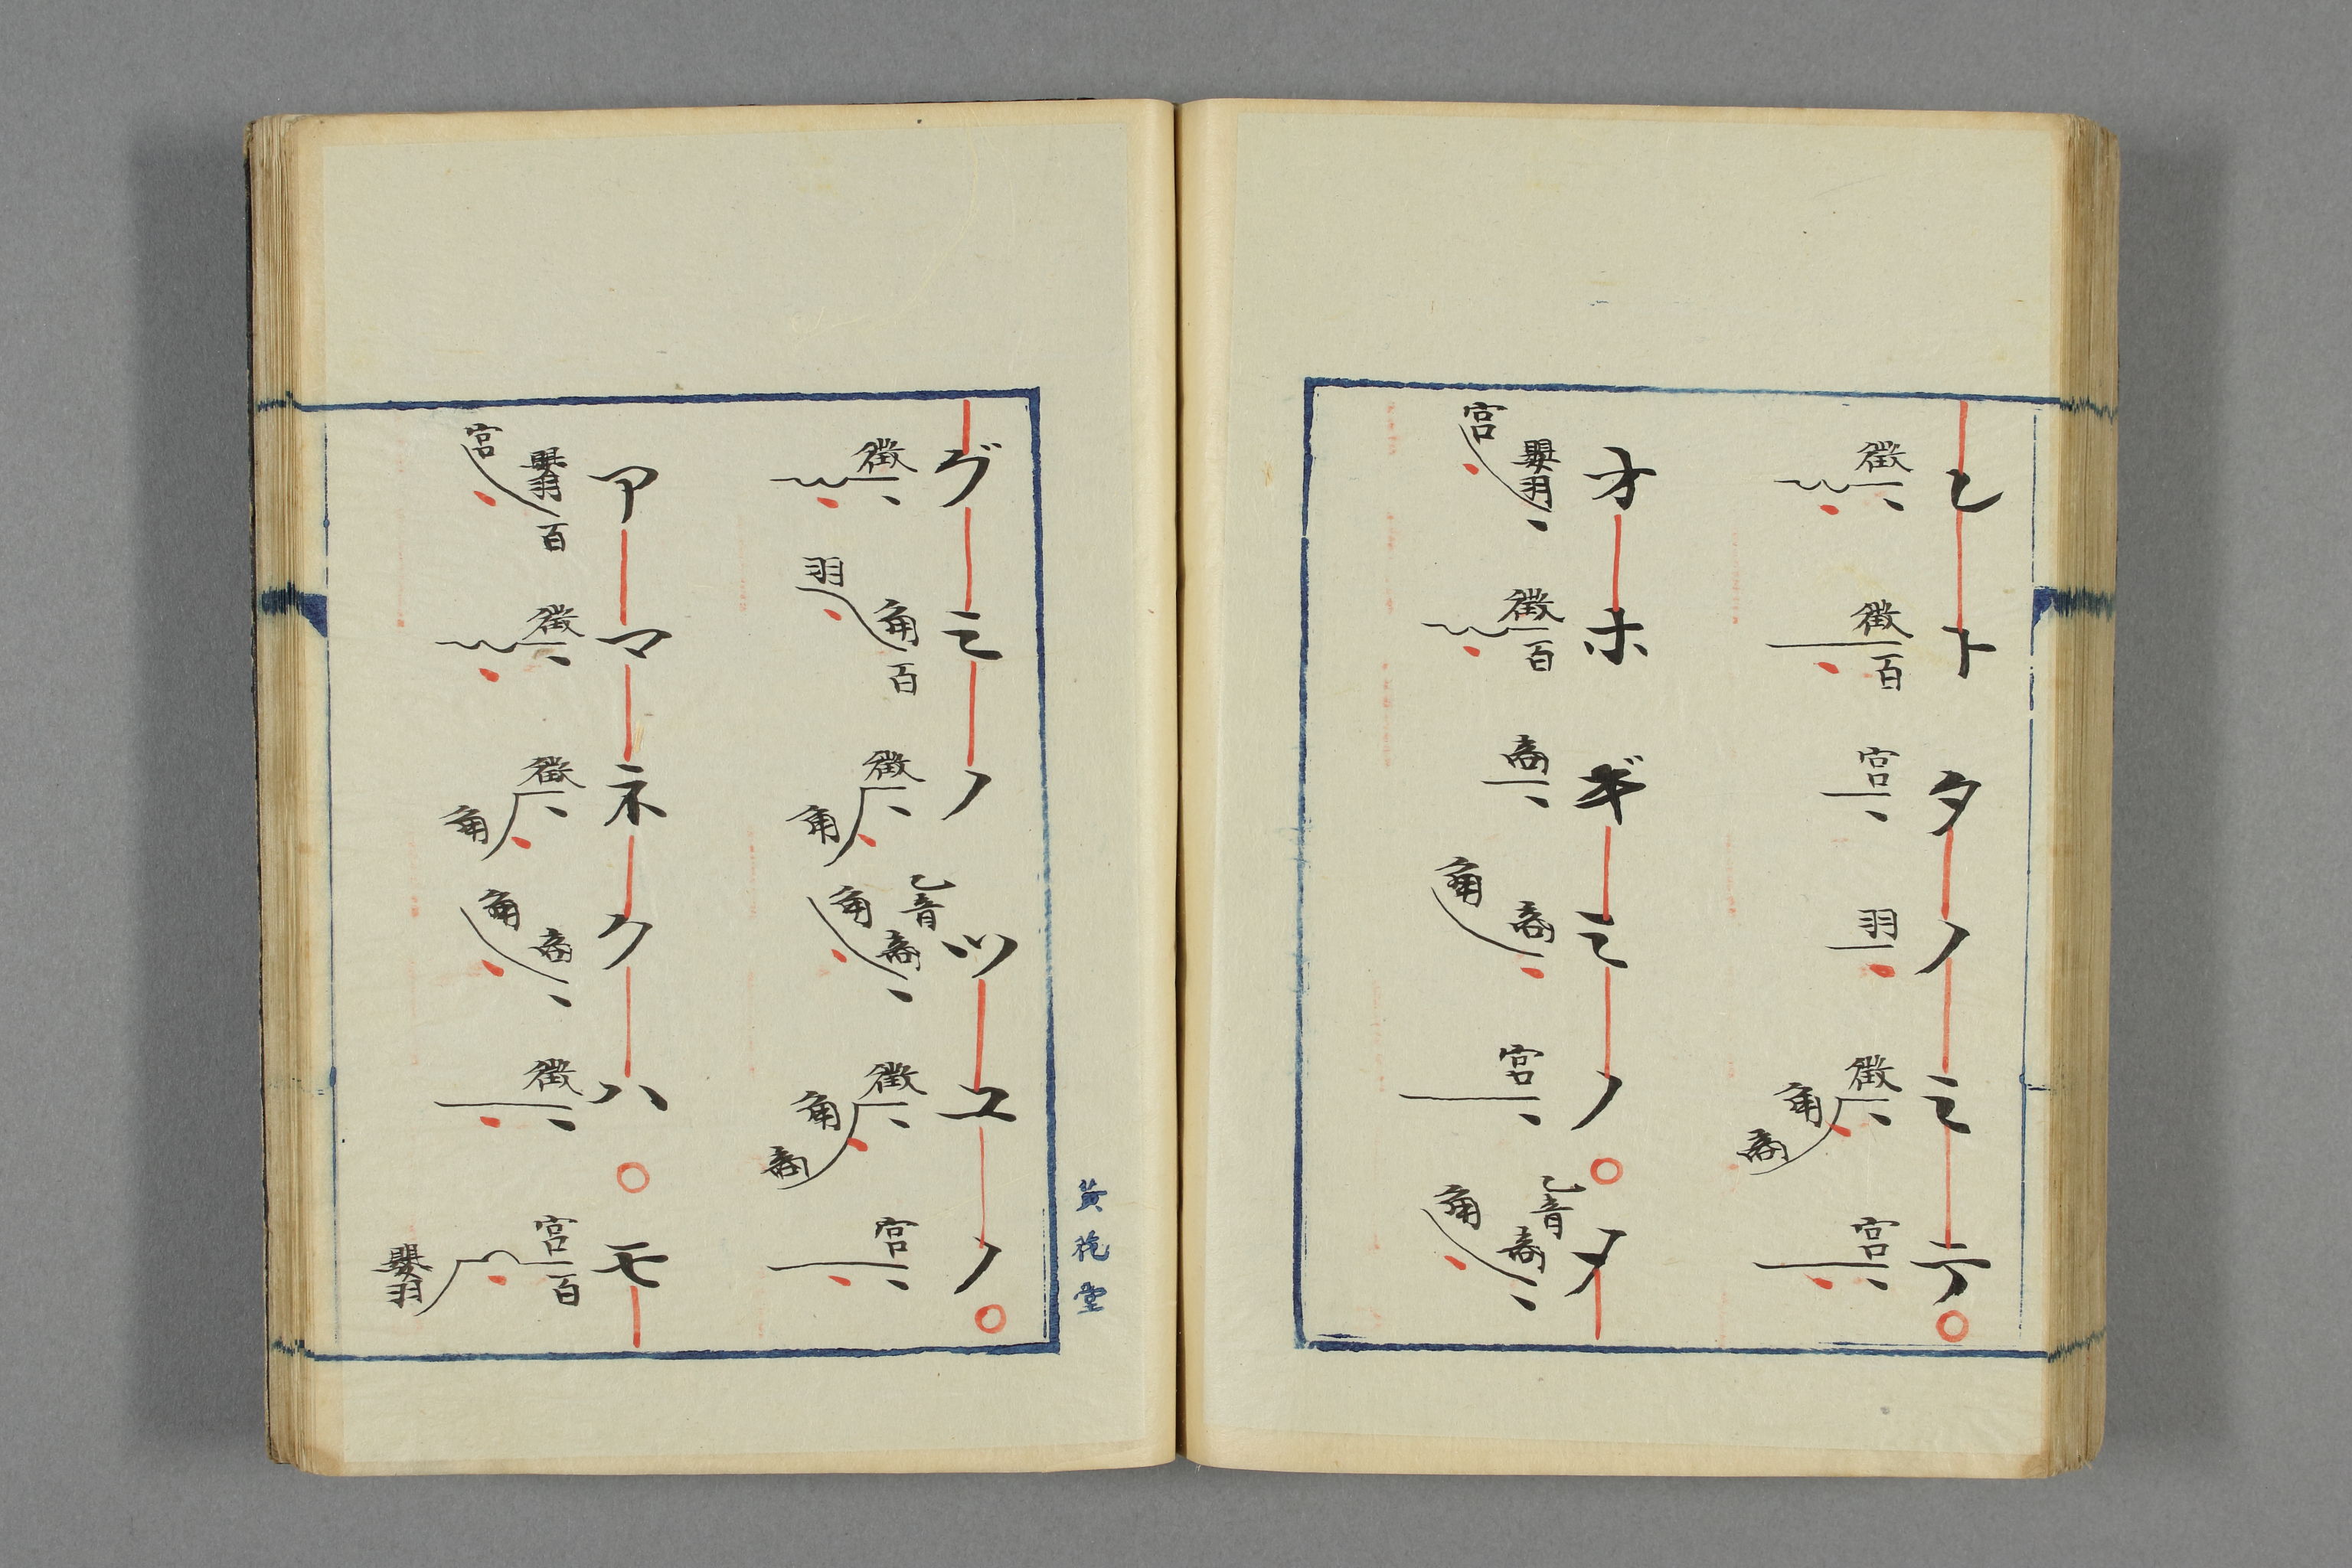 ヒトタノミテ○
徴 徴百 宮 羽 徴角商 宮
オホギミノ○メ
嬰羽宮 徴百 商 商角 宮 乙音商角
グミノツユノ○
徴 角百羽 徴角 乙音商角 徴角商 宮
アマネクハ○モ
嬰羽百宮 徴 徴角 商角 徴 宮百嬰羽